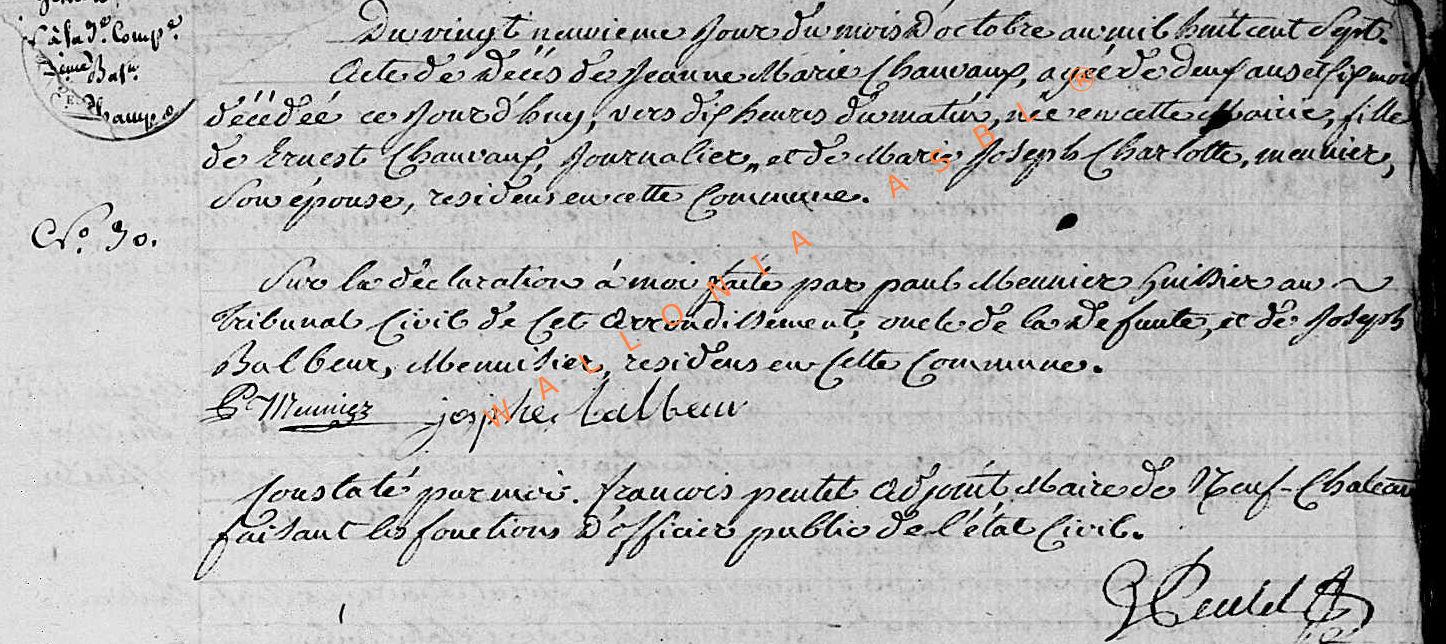 à la 7e. Compe.
2ieme Batn.
Champs
Du vingt neuvieme Jour du mois D'octobre an mil huit cent Sept.
Acte de décès de Jeanne Marie Chauvaux, agée de deux ans et six mois
décédée ce Jourd'huy, vers dix heures du matin, née en cette Mairie, fille
de Ernest Chauvaux, Journalier, et de Marie Joseph Charlotte, meunier,
Son épouse, residens en cette Commune.
No. 30.
Sur la déclaration à moi faite par paul Meunier huissier au
Tribunal Civil de Cet Arrondissement, oncle de la Defunte, et de Joseph
Balbeur, Menuisier, residens en Cette Commune.
P. Meunier josphe balbeur
Constaté par moi. françois pentet Adjoint Maire de Neuf-Chateau
faisant les fonctions D'officier public de l'état Civil.
WALLONIA ASBL ®